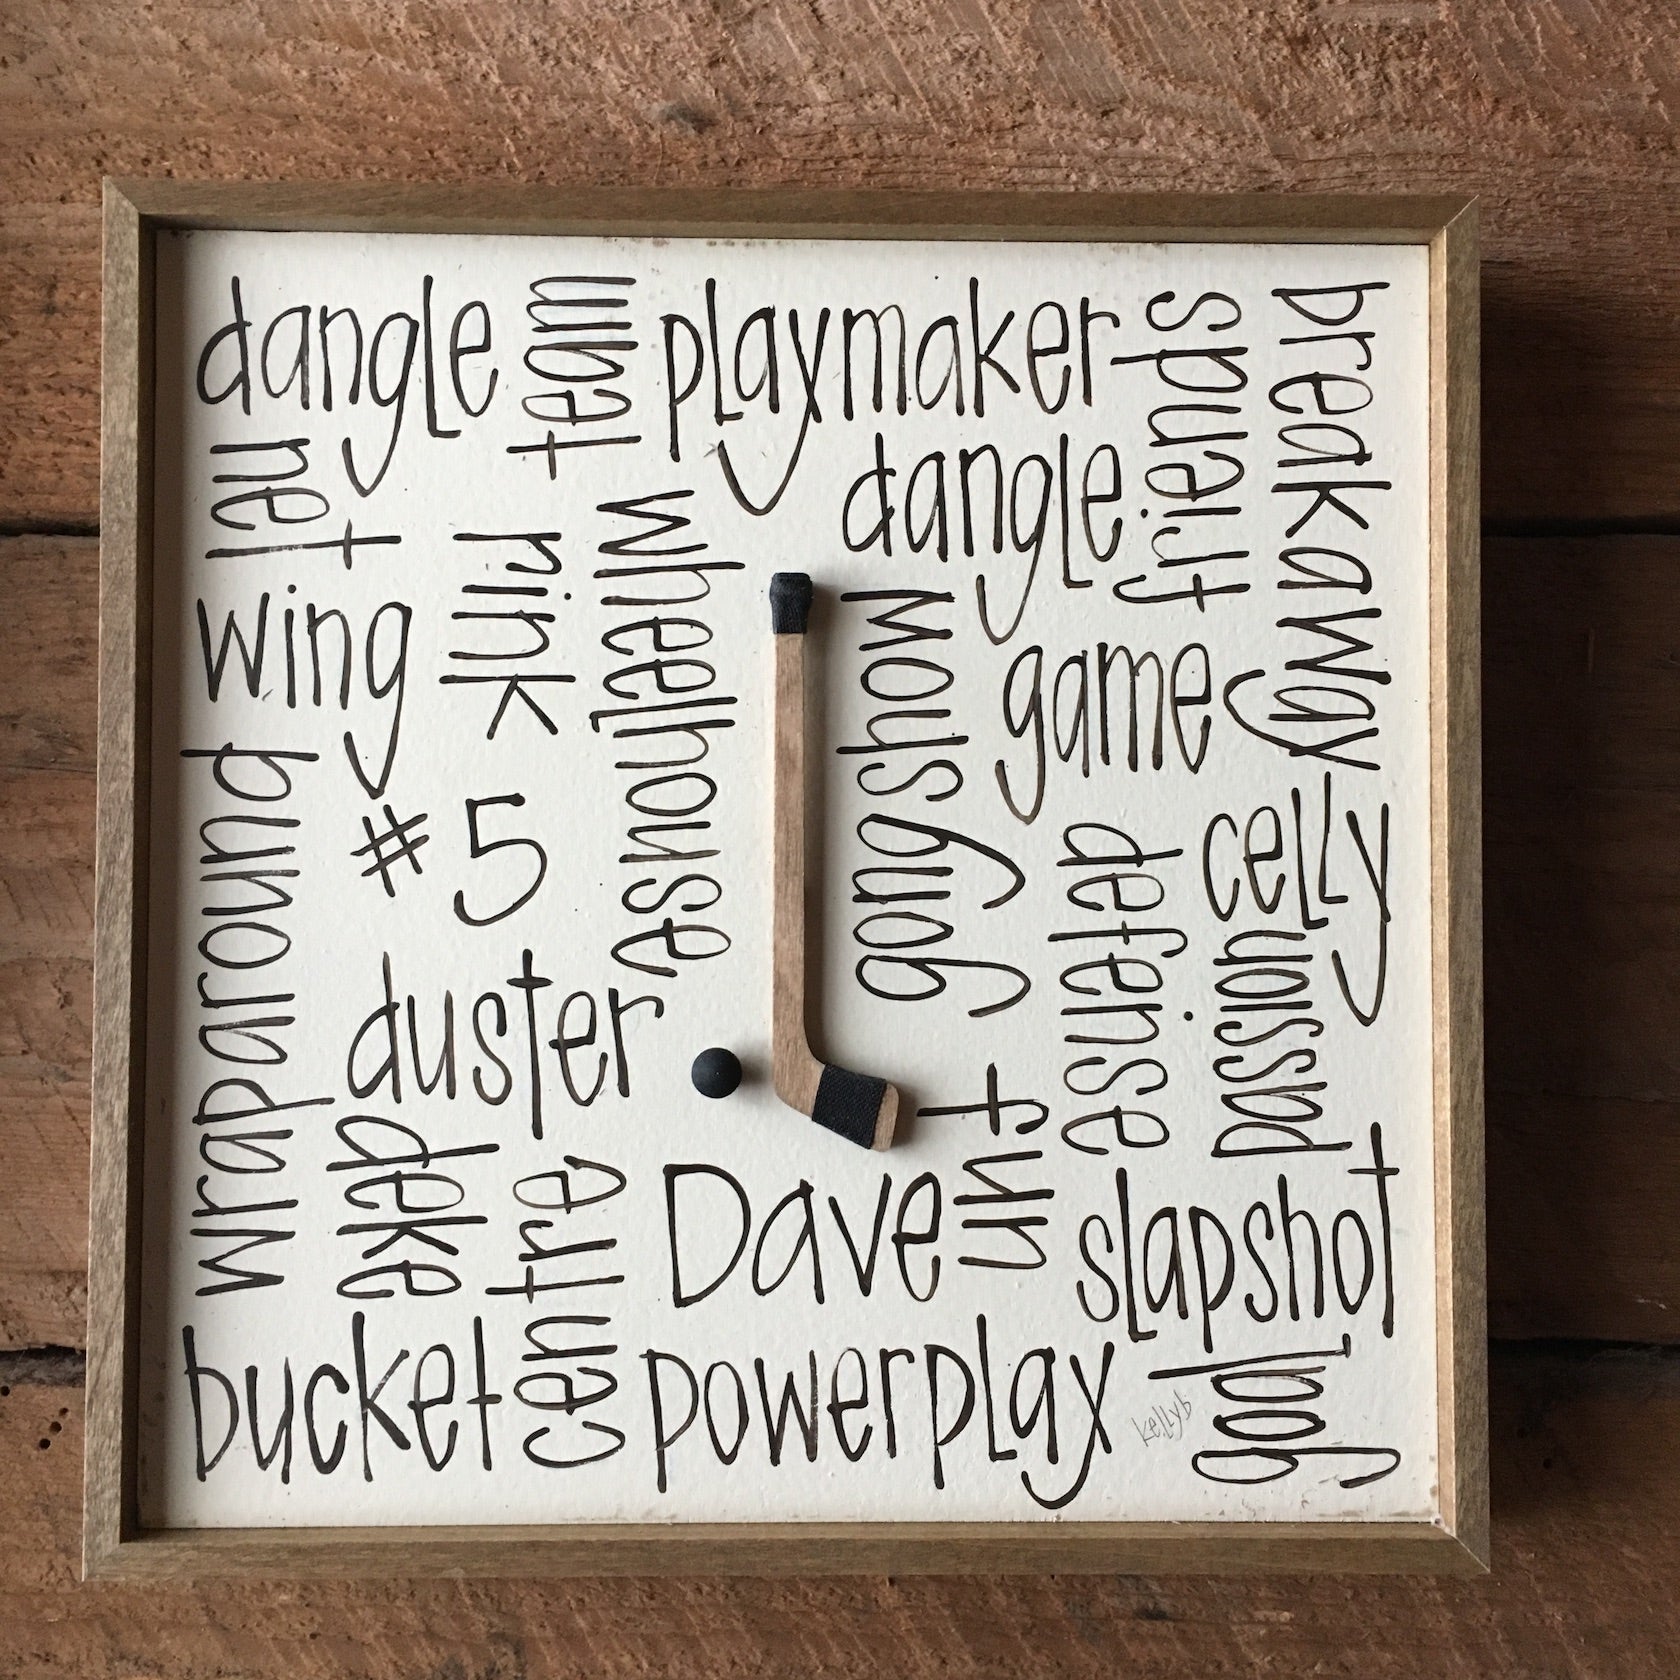 dangle
team
playmaker
friends
breakaway
net
dangle
rink
wheelhouse
wing
gongshow
game
wraparound
# 5
celly
defense
passion
duster
deke
centre
Dave
fun
slapshot
bucket
powerplay
goal
kellyb